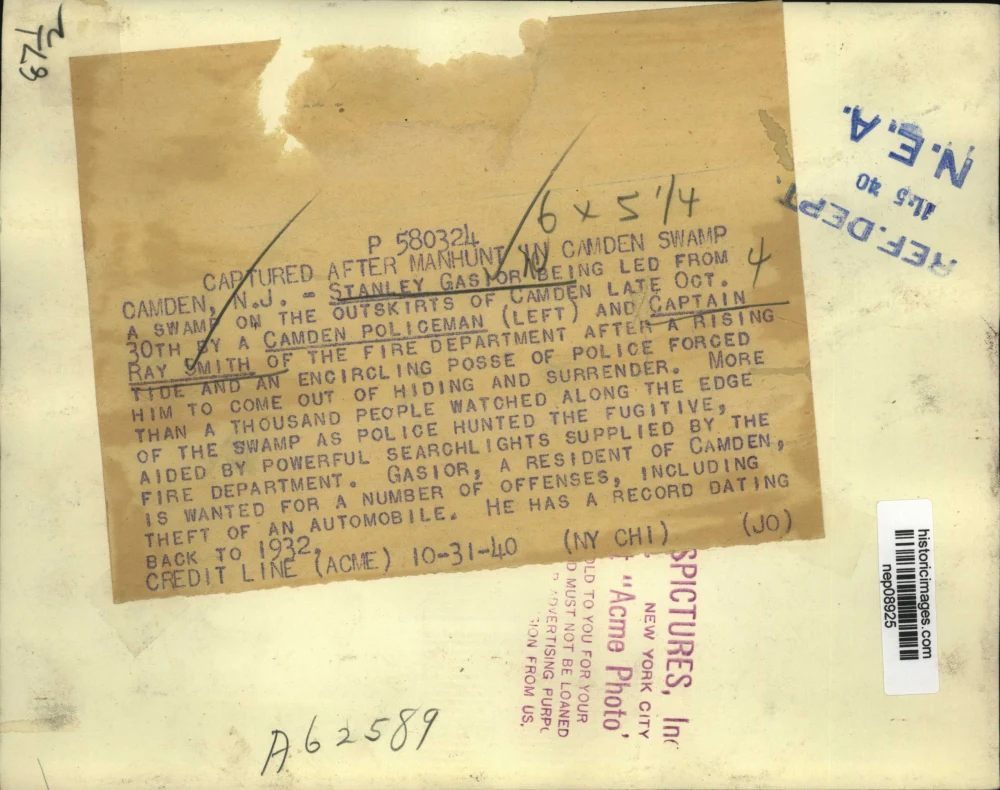 6 x 5 1/4
P 580324
CAPTURED AFTER MANHUNT IN CAMDEN SWAMP
CAMDEN, N.J. - STANLEY GASIOR BEING LED FROM
4
A SWAMP ON THE OUTSKIRTS OF CAMDEN LATE OCT.
30TH BY A CAMDEN POLICEMAN (LEFT) AND CAPTAIN
RAY SMITH OF THE FIRE DEPARTMENT AFTER A RISING
TIDE AND AN ENCIRCLING POSSE OF POLICE FORCED
HIM TO COME OUT OF HIDING AND SURRENDER. MORE
THAN A THOUSAND PEOPLE WATCHED ALONG THE EDGE
OF THE SWAMP AS POLICE HUNTED THE FUGITIVE,
AIDED BY POWERFUL SEARCHLIGHTS SUPPLIED BY THE
FIRE DEPARTMENT. GASIOR, A RESIDENT OF CAMDEN,
IS WANTED FOR A NUMBER OF OFFENSES, INCLUDING
THEFT OF AN AUTOMOBILE. HE HAS A RECORD DATING
BACK TO 1932.
CREDIT LINE (ACME) 10-31-40 (NY CHI) (JO)
REF. DEPT.
N.E.A.
SPICTURES, Inc
NEW YORK CITY
"Acme Photo"
OLD TO YOU FOR YOUR
D MUST NOT BE LOANED
ADVERTISING PURPO
ION FROM US.
historicimages.com
nep08925
A62589